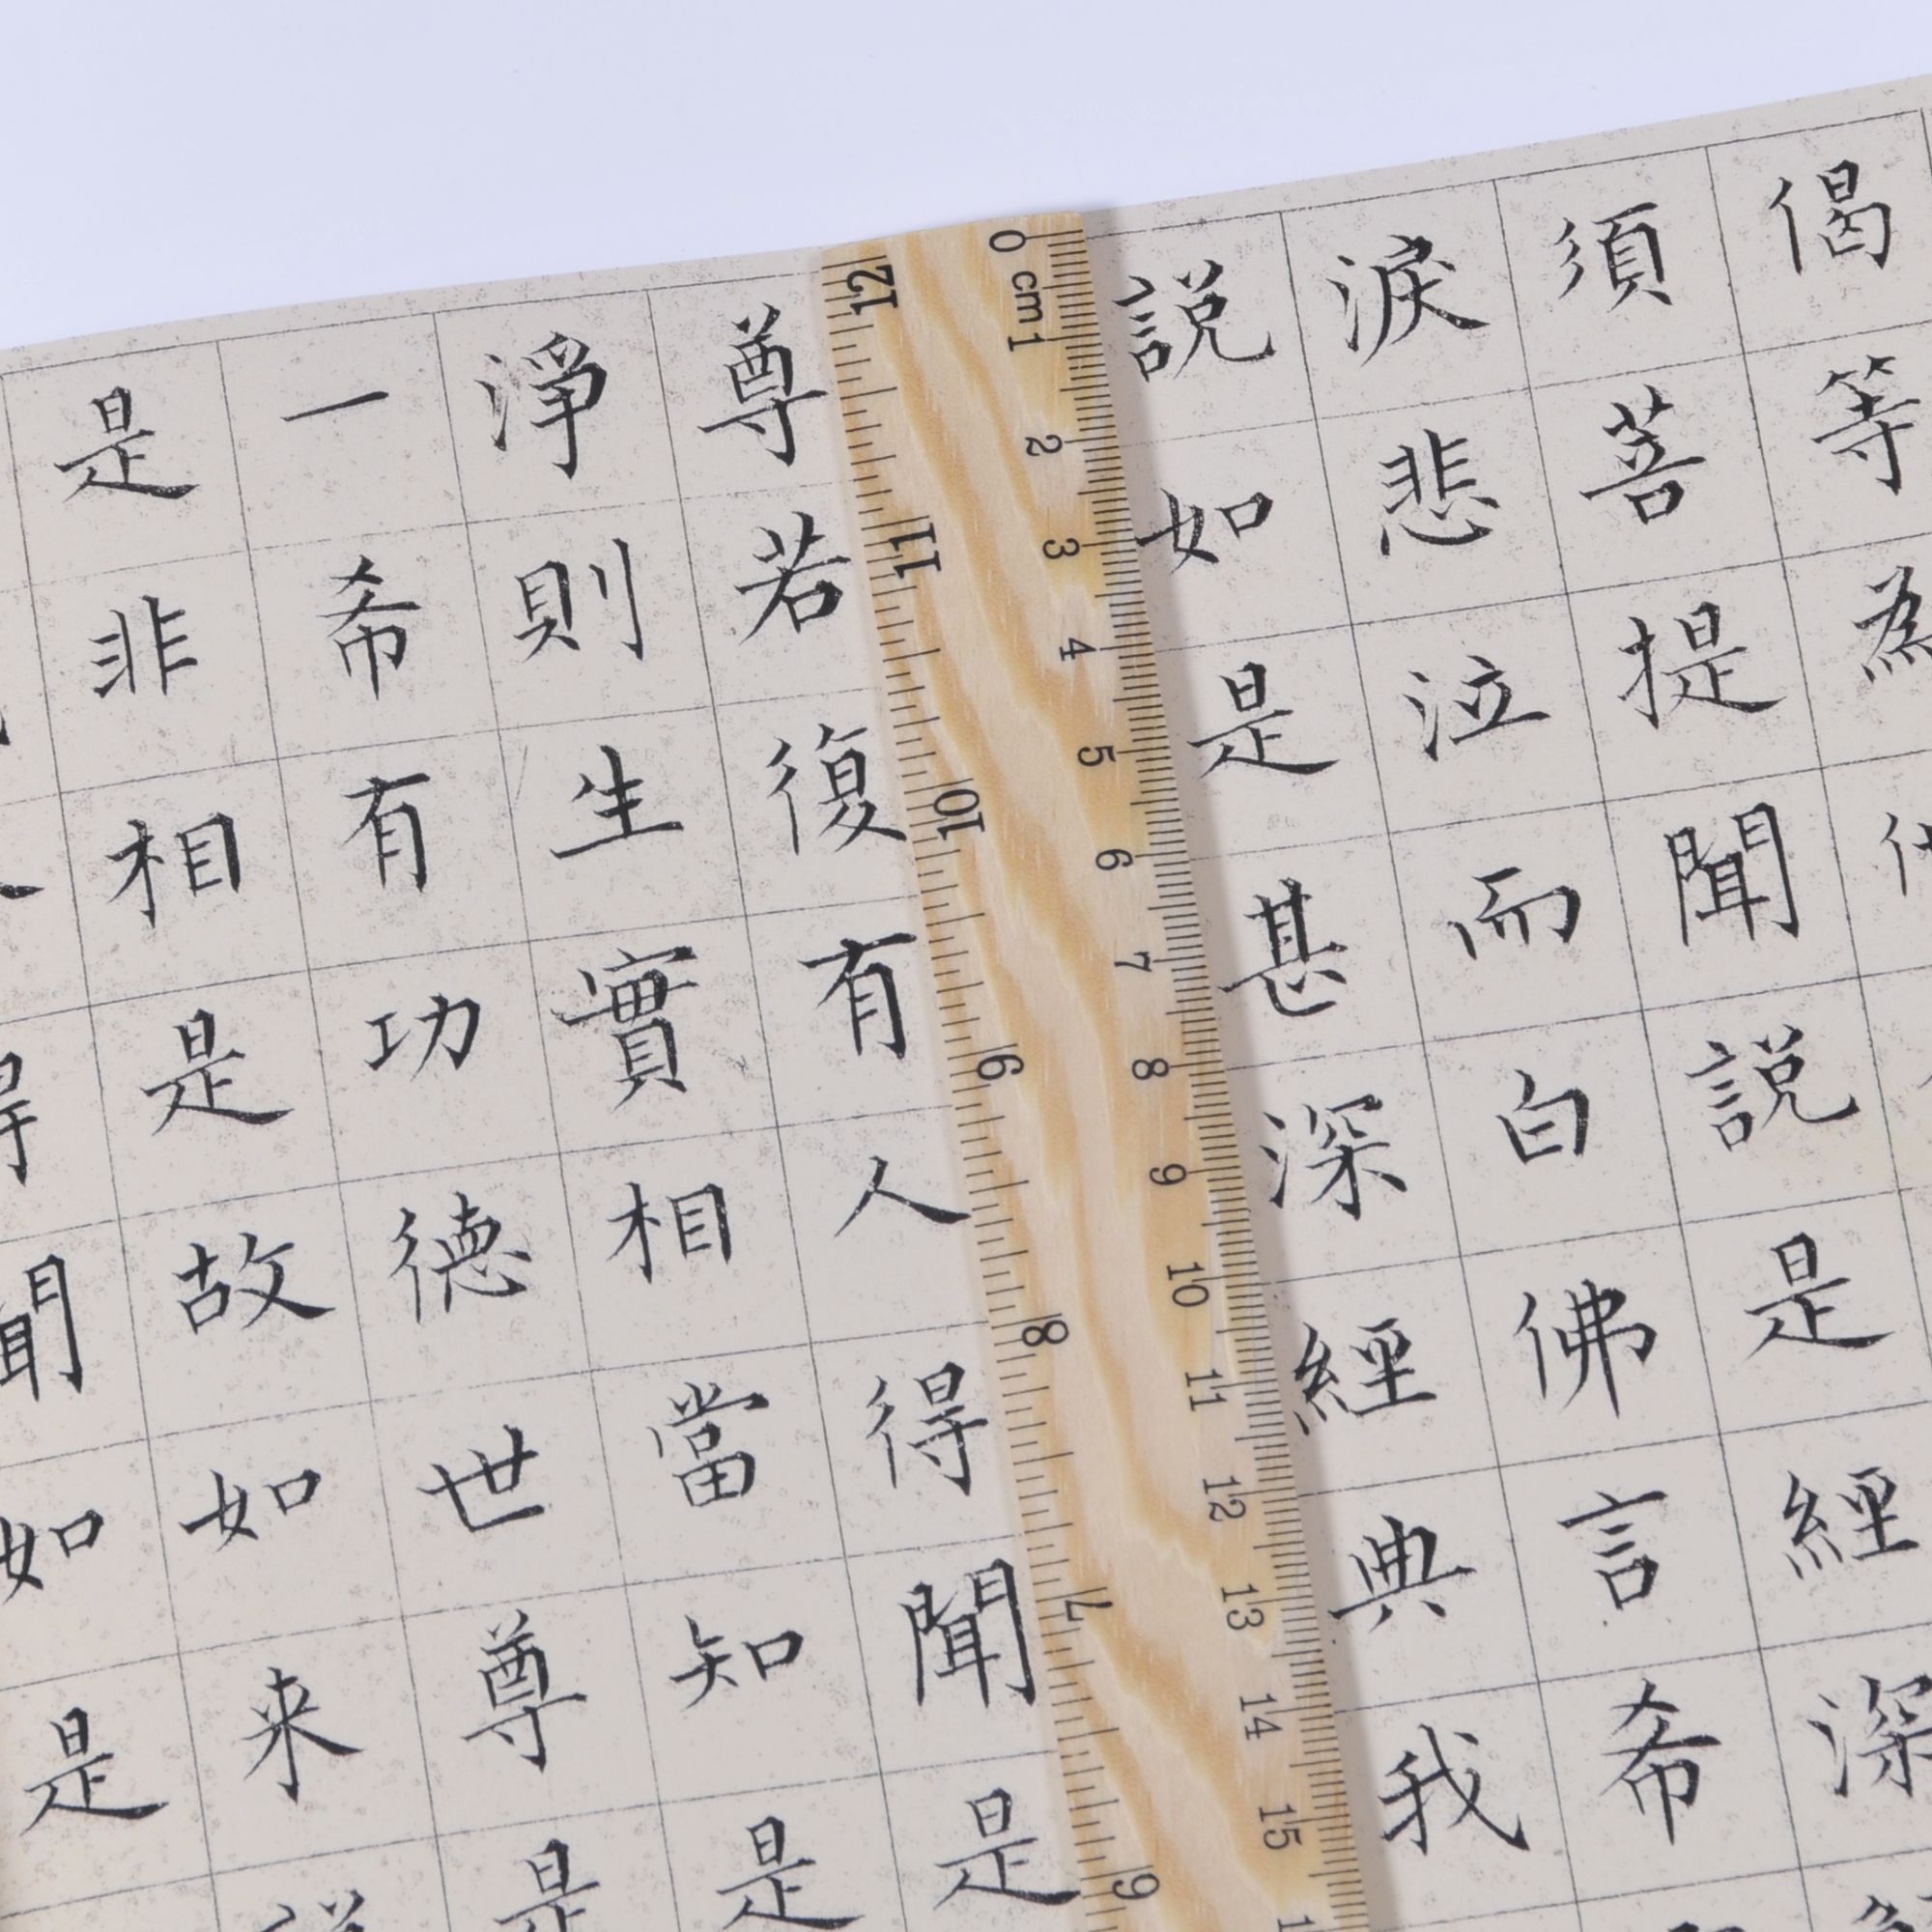 偈等為
須菩提聞説是經深
淚悲泣而白佛言希
説如是甚深經典我
尊若復有人得聞是
淨則生實相當知是
一希有功德世尊是
是非相是故如来
得聞如是
0 cm 1 2 3 4 5 6 7 8 9 10 11 12 13 14 15
12 11 10 9 8 7 6